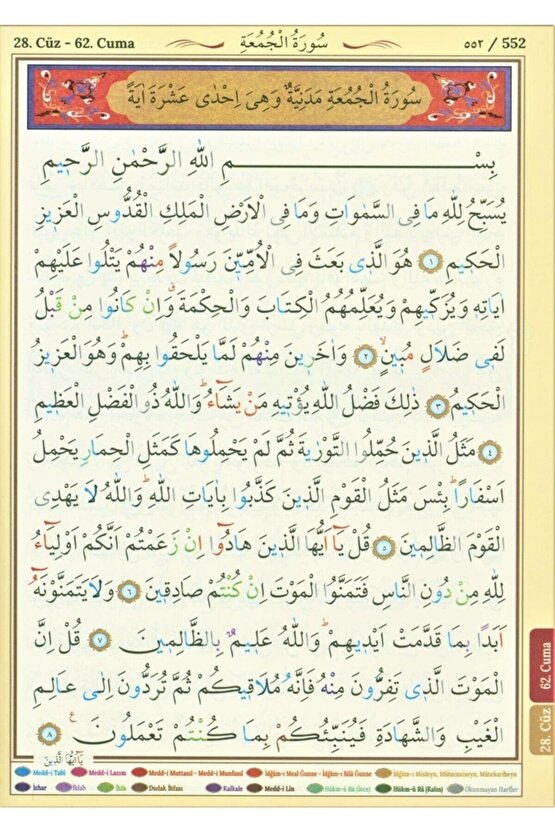 28. Cüz - 62. Cuma سُورَةُ الْجُمُعَةِ ٥٥٢ / 552
سُورَةُ الْجُمُعَةِ مَدَنِيَّةٌ وَهِىَ اِحْدٰى عَشْرَةَ اٰيَةً
بِسْمِ اللّٰهِ الرَّحْمٰنِ الرَّحٖيمِ
يُسَبِّحُ لِلّٰهِ مَا فِى السَّمٰوَاتِ وَمَا فِى الْاَرْضِ الْمَلِكِ الْقُدُّوسِ الْعَزٖيزِ
الْحَكٖيمِ ١ هُوَ الَّذٖى بَعَثَ فِى الْاُمِّيّٖنَ رَسُولاً مِنْهُمْ يَتْلُوا عَلَيْهِمْ
اٰيَاتِهٖ وَيُزَكّٖيهِمْ وَيُعَلِّمُهُمُ الْكِتَابَ وَالْحِكْمَةَ وَاِنْ كَانُوا مِنْ قَبْلُ
لَفٖى ضَلَالٍ مُبٖينٍ ٢ وَاٰخَرٖينَ مِنْهُمْ لَمَّا يَلْحَقُوا بِهِمْ وَهُوَ الْعَزٖيزُ
الْحَكٖيمُ ٣ ذٰلِكَ فَضْلُ اللّٰهِ يُؤْتٖيهِ مَنْ يَشَٓاءُ وَاللّٰهُ ذُو الْفَضْلِ الْعَظٖيمِ
٤ مَثَلُ الَّذٖينَ حُمِّلُوا التَّوْرٰيةَ ثُمَّ لَمْ يَحْمِلُوهَا كَمَثَلِ الْحِمَارِ يَحْمِلُ
اَسْفَاراً بِئْسَ مَثَلُ الْقَوْمِ الَّذٖينَ كَذَّبُوا بِاٰيَاتِ اللّٰهِ وَاللّٰهُ لَا يَهْدِى
الْقَوْمَ الظَّالِمٖينَ ٥ قُلْ يَٓا اَيُّهَا الَّذٖينَ هَادُٓوا اِنْ زَعَمْتُمْ اَنَّكُمْ اَوْلِيَٓاءُ
لِلّٰهِ مِنْ دُونِ النَّاسِ فَتَمَنَّوُا الْمَوْتَ اِنْ كُنْتُمْ صَادِقٖينَ ٦ وَلَا يَتَمَنَّوْنَهُٓ
اَبَداً بِمَا قَدَّمَتْ اَيْدٖيهِمْ وَاللّٰهُ عَلٖيمٌ بِالظَّالِمٖينَ ٧ قُلْ اِنَّ
الْمَوْتَ الَّذٖى تَفِرُّونَ مِنْهُ فَاِنَّهُ مُلَاقٖيكُمْ ثُمَّ تُرَدُّونَ اِلٰى عَالِمِ
الْغَيْبِ وَالشَّهَادَةِ فَيُنَبِّئُكُمْ بِمَا كُنْتُمْ تَعْمَلُونَ ٨
يَٓا اَيُّهَا الَّذٖينَ
62. Cuma
28. Cüz
Medd-i Tabi Medd-i Lazım Medd-i Muttasıl - Medd-i Munfasıl İdğam-ı Meal Ğunne - İdğam-ı Bilâ Ğunne İdğam-ı Misleyn, Mütecaniseyn, Mütekaribeyn
İzhar İklab İhfa Dudak İhfası Kalkale Medd-i Lin Hükm-ü Râ (İnce) Hükm-ü Râ (Kalın) Okunmayan Harfler